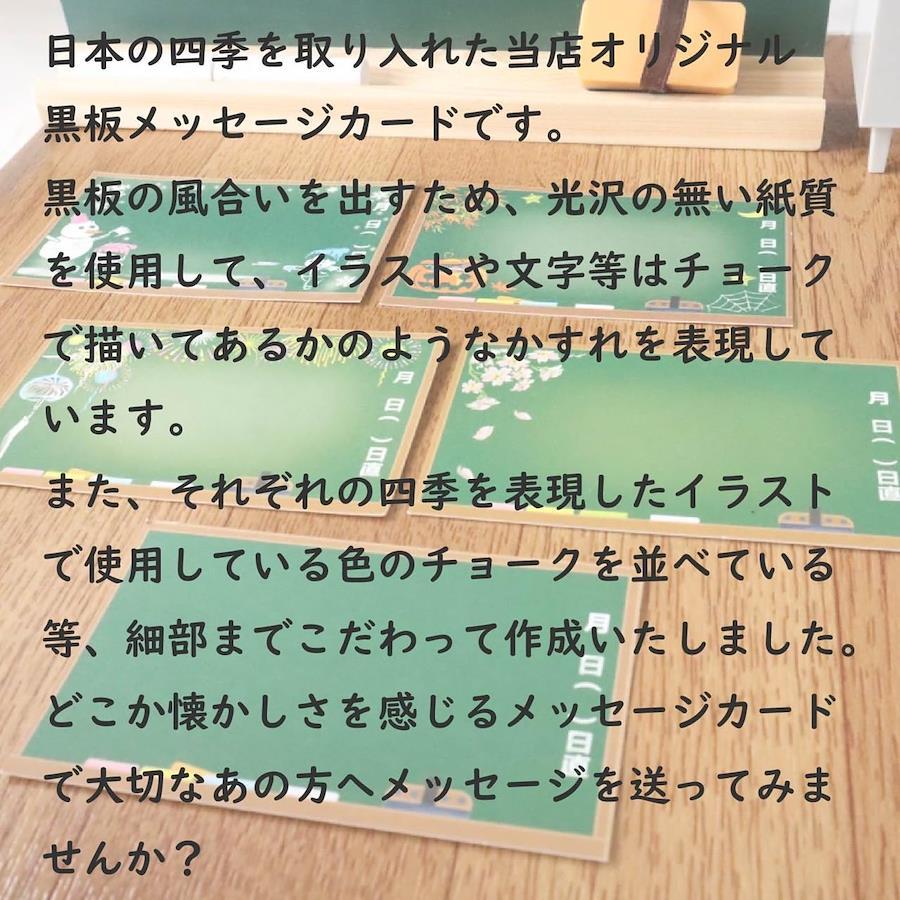 日本の四季を取り入れた当店オリジナル
黒板メッセージカードです。
黒板の風合いを出すため、光沢の無い紙質
を使用して、イラストや文字等はチョーク
で描いてあるかのようなかすれを表現して
います。
また、それぞれの四季を表現したイラスト
で使用している色のチョークを並べている
等、細部までこだわって作成いたしました。
どこか懐かしさを感じるメッセージカード
で大切なあの方へメッセージを送ってみま
せんか？
月 日( )日直
月 日( )日直
月 日( )日直
月 日( )日直